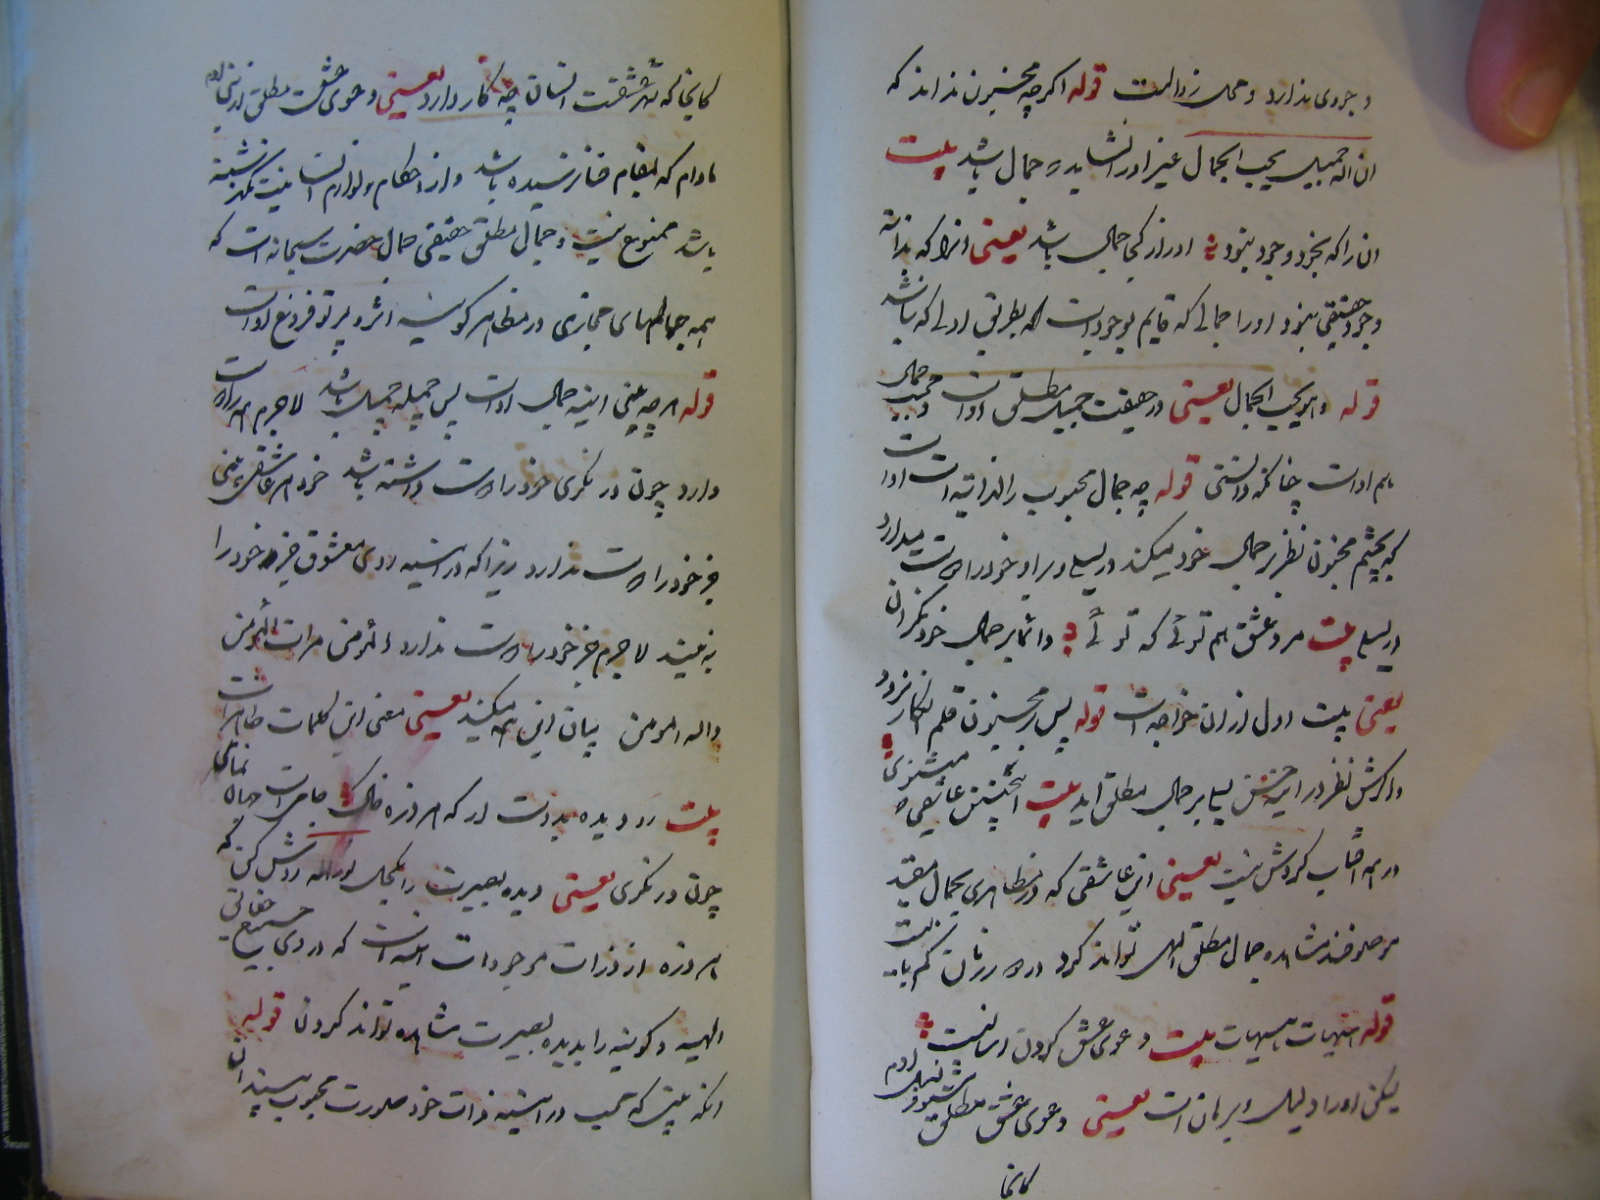 وجودی ندارد و محل زوالست قوله اگرچه مجنون نداند که
ان الله جمیل یحب الجمال غیر او را نشاید که جمال باشد بیت
ان را که بخود وجود نبود او را ز کجا جمال باشد یعنی انرا که بذاته
وجود حقیقی نبود او را جمالی که قایم بوجود است بطریق اولی که نباشد
قوله و هو یحب الجمال یعنی در حقیقت جمیل مطلق اوست و محب جمال
هم اوست چنانکه دانستی قوله چه جمال محبوب لذاته است اوست
که بچشم مجنون نظر بر جمال خود میکند در لیلی و بر او خود را دوست میدارد
در لیلی بیت مرد عشق هم توئی که توئی دائما بر جمال خود نگران
یعنی بیت اول از ان خواجه است قوله پس بر مجنون قلم انکار نرود
و اگرش نظر در اینه حسن لیلی بر جمال مطلق اید بیت اینچنین عاشقی
در همه افاق کردش نیست یعنی این عاشقی که در مظاهری بجمال مقید
مشاهده جمال مطلق الهی تواند کرد در هر زمان کم یابند
قوله هیهات هیهات بیت دعوی عشق کردن اسانست
لیکن او را دلیل و برهان است یعنی دعوی عشق مطلق
کانجا
کانجا که شهر عشقست انسان چه کار دارد یعنی دعوی عشق مطلق
مادام که بمقام فنا نرسیده باشد و از احکام و لوازم
باشد ممنوع نیست و جمال مطلق حقیقی جمال حضرت سبحانه است که
همه جمالهای مجازی در مظاهر کونیه اثر و پرتو فروغ اوست
قوله هرچه بینی اینه جمال اوست پس جمله جمیل باشد لاجرم همه را دوست
دارد چون در نگری خود را دوست داشته باشد خود هر عاشقی که بینی
جز خود را دوست ندارد زیرا که در اینه روی معشوق جز خود را
نه بیند لاجرم جز خود را دوست ندارد المؤمن مرات المؤمن
والله المومن بیان این همه میکند یعنی معنی این کلمات ظاهر است
بیت رو دیده بدست ار که هر ذره خاک جامیست جهان نمای
چون در نگری یعنی دیده بصیرت را بکحل نور الله روشن کن که
هر ذره از ذرات موجودات اینه است که در وی جمیع حقایق
الهیه و کونیه را بدیده بصیرت مشاهده تواند کردن قوله
انکه بیت که محب در اینه ذات خود صورت محبوب بیند ان